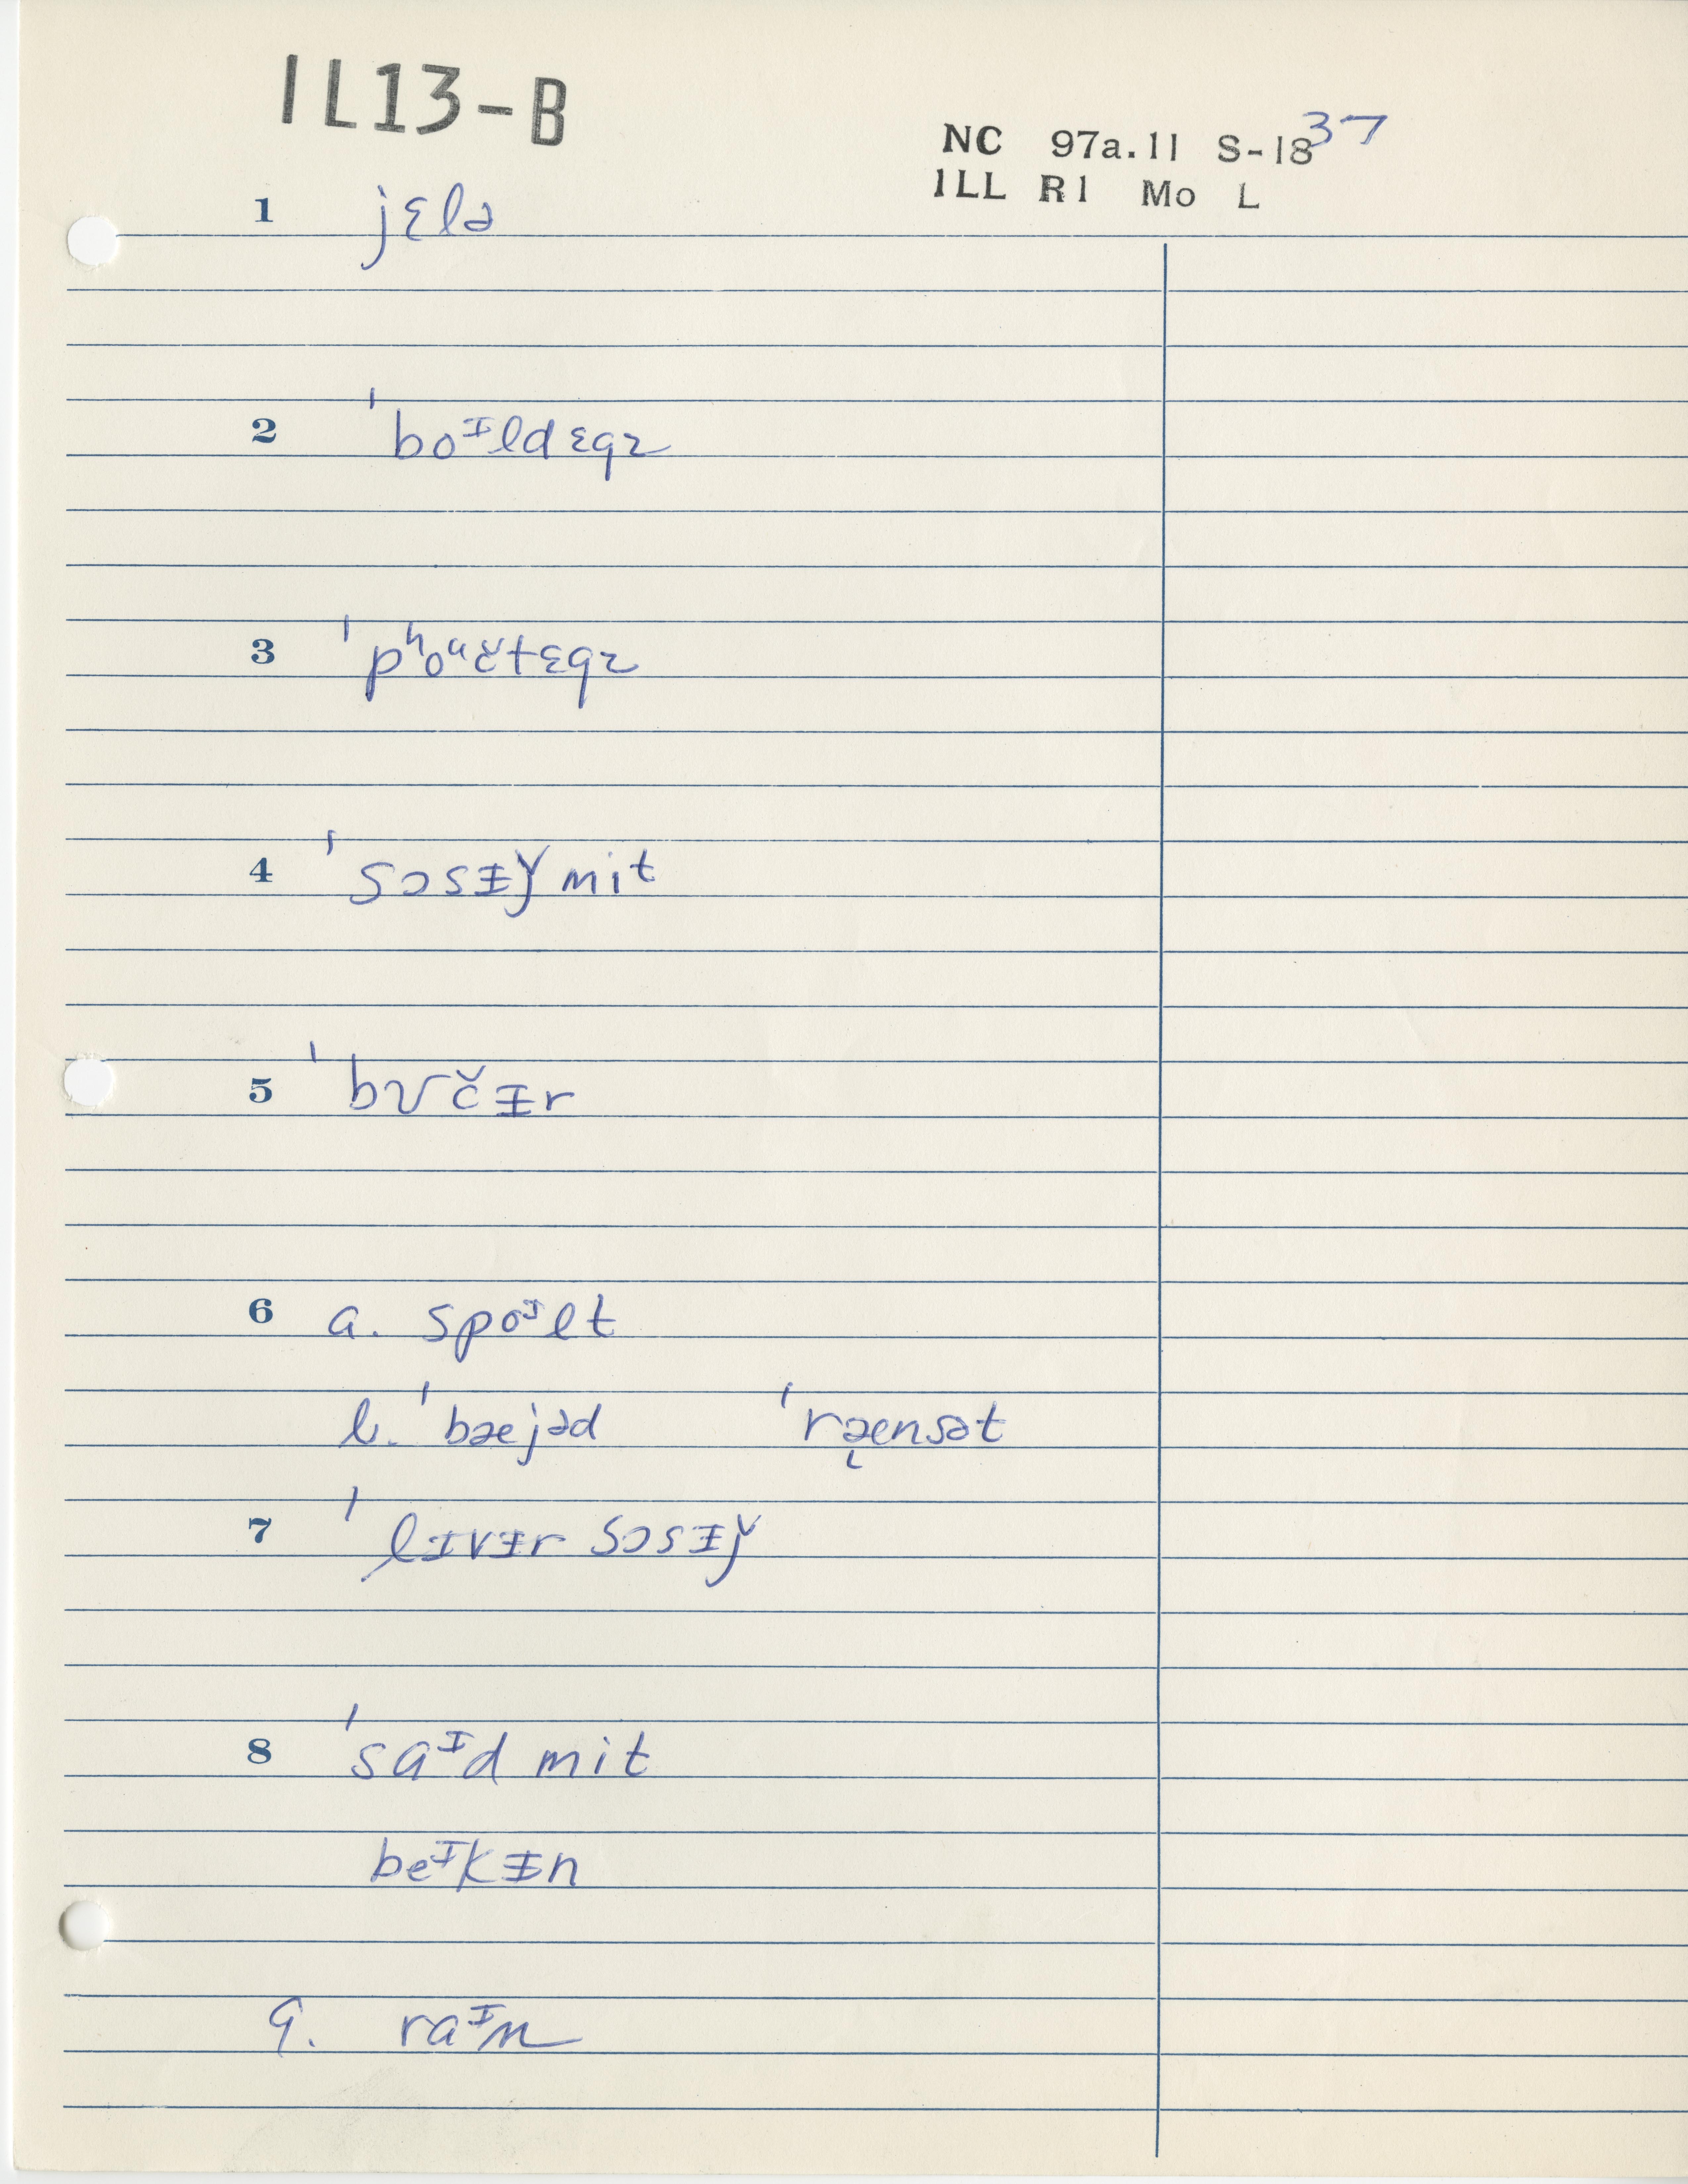 IL13-B
NC 97a.11 S-18 37
ILL R1 Mo L
1 jɛlə
2 ˈboᶦldɛgz
3 ˈpʰoᵘčtɛgz
4 ˈsɔsᵻǰmit
5 ˈbʊčᵻr
6 a. spoᶦlt
b. ˈbæjəd ˈræ̨nsət
7 ˈlɪvᵻrsɔsᵻǰ
8 ˈsaᶦdmit
beᶦkᵻn
9. raᶦn